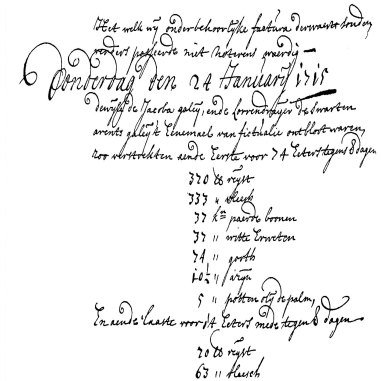 Het welk wij onder behoorlijke factura derwaert sonden
verders passeerde niet noterens waerdig
Donderdag den 24 Januarij 1715
dewijle de Jacoba galey, ende Lorrendrayer de swarten
arents galeyt t'enemael van fictualie ontbloot waren,
zoo verstrekten aende Eerste voor 74 Eeters tegens 8 dagen
370 lb reyst
333 " vleesch
37 kan paerde boonen
37 " witte Erweten
74 " gorth
10½ " azijn
5 " potten olij de palm,
En aende laaste voor 14 Eeters mede tegen 8 dagen
70 lb reyst
63 " vleesch